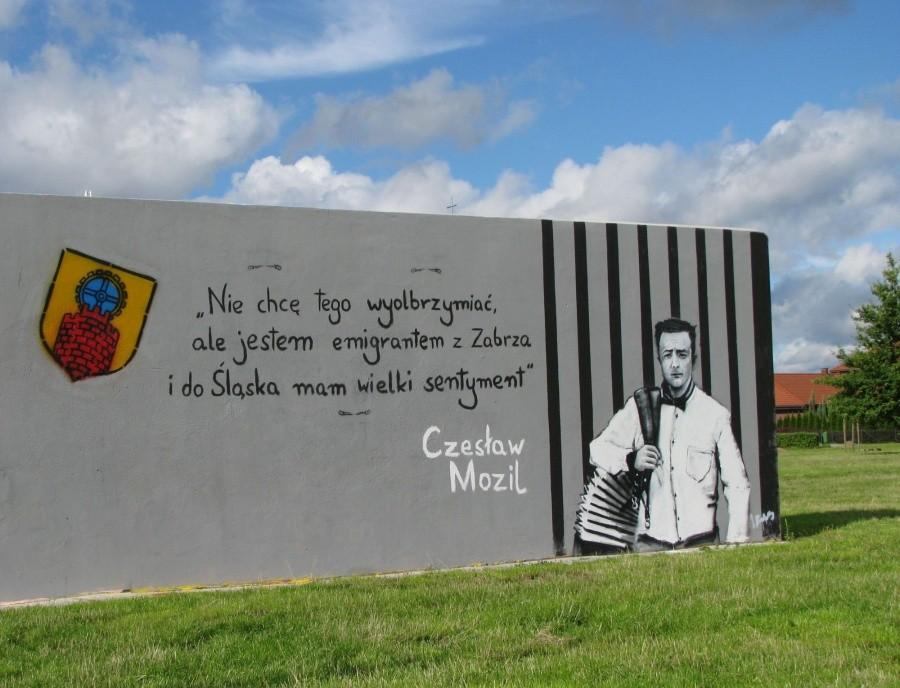 „Nie chcę tego wyolbrzymiać,
ale jestem emigrantem z Zabrza
i do Śląska mam wielki sentyment“
Czesław
Mozil